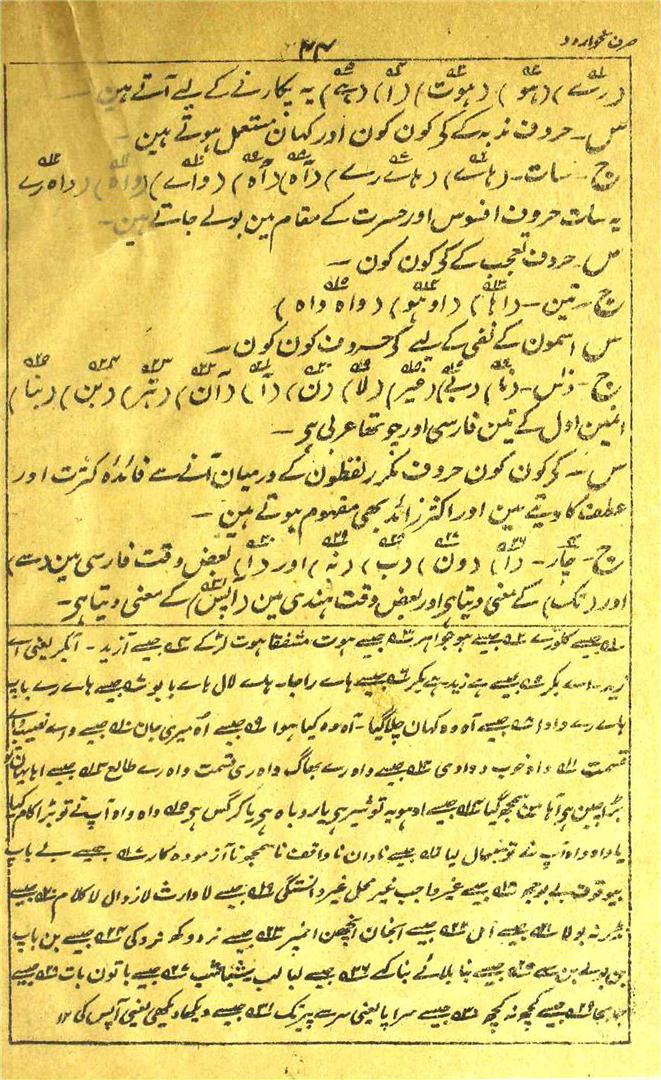 صرف نحو اردو
۴۴
(رے) (ہو) (ہوت) (ا) (ہے) یہ پکارنے کے لیے آتے ہین ۔
س ۔ حروف ندبہ کے کَو کون کون اور کہان مستعمل ہوتے ہین ۔
ج ۔ سات ۔ (ہاے) (ہاے رے) (آہ) (آہ) (واے) (واہ) (واہ رے
یہ سات حروف افسوس اور حسرت کے مقام مین بولے جاتے ہین ۔
س ۔ حروف تعجب کے کَو کون کون ۔
ج ۔ تین ۔ (اہا) (اوہو) (واہ واہ)
س اسمون کے نفی کے لیے کَو حروف کون کون ۔
ج ۔ دس ۔ (نا) (بے) (غیر) (لا) (ن) (ا) (ان) (نر) (بن) (بنا)
انمین اول کے تین فارسی اور چوتھا عربی ہی ۔
س ۔ کَو کون کون حروف مکرر لفظون کے درمیان آنے سے فائدہ کثرت اور
عطف کا دیتے ہین اور اکثر زائد بھی مفہوم ہوتے ہین ۔
ج ۔ چار ۔ (ا) (ون) (ب) (نہ) اور (ا) بعض وقت فارسی مین (سے)
اور (تک) کے معنی دیتا ہی اور بعض وقت ہندی مین (آپس) کے معنی دیتا ہی ۔
جیسے کلو رے جیسے ہو جواہر جیسے ہوت مشفقا ہوت لڑکے جیسے آزید ۔ آبکر یعنی اے
زید ۔ اے بکر جیسے ہے زید ہے بکر جیسے ہاے راجا ۔ ہاے لال ہاے بابو جیسے ہاے رے باپ
ہاے رے دادا جیسے آہ وہ کہان چلا گیا ۔ آہ وہ کیا ہوا جیسے آہ میری جان جیسے واے نصیب واے
قسمت واہ خوب دوا دی جیسے واہ رے بھاگ واہ ری قسمت واہ رے طالع جیسے اہا یہان تو
بڑا چین ہی آہا مین سمجھ گیا جیسے اوہو یہ تو شیر ہی یا روباہ ہی یا کرگس ہی واہ واہ آپ نے تو بڑا کام کیا
یا واہ واہ آپ نے تو سنبھال لیا جیسے نادان ناواقف ناسمجھ ناآزمودہ کار جیسے بے باپ
بیوقوف بے بوجھ جیسے غیر واجب غیر محل غیر دانستگی جیسے لاوارث لازوال لاکلام جیسے
نڈر نہ بولا جیسے اٹل جیسے انجان انگھن انمیز جیسے نردوکھ نردکی جیسے بن باپ
بن بولے بن سے جیسے بنا بلائے بنا کہے جیسے لبا لب شباشب جیسے باتون بات جیسے
جا بجا جیسے کچھ نہ کچھ جیسے سراپا یعنی سر سے پیر تک جیسے دیکھا دیکھی یعنی آپس کی ۱۲